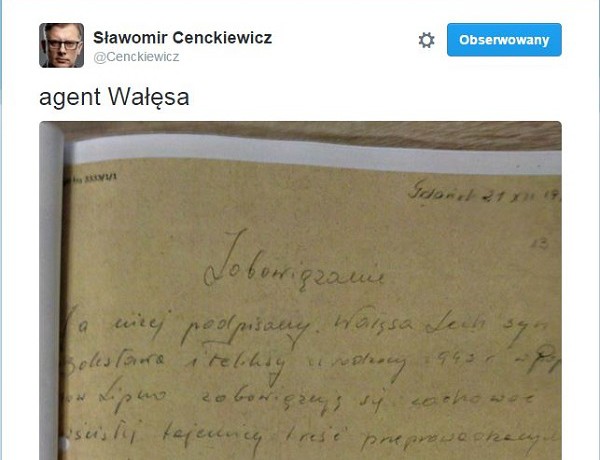 Sławomir Cenckiewicz
@Cenckiewicz
Obserwowany
agent Wałęsa
Gdańsk 21 XII 19
13
Zobowiązanie
Ja niżej podpisany Wałęsa Lech syn
Bolesława i Feliksy urodzony 1943 r w
Lipno zobowiązuję się zachować
ścisłej tajemnicy treść